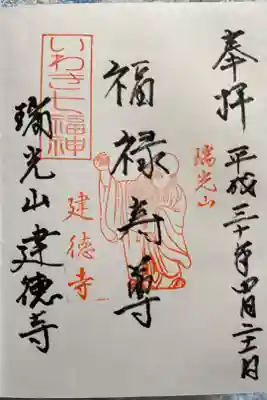 奉拝 平成三十年四月二十一日
瑞光山
福禄寿尊
建徳寺
いわき七福神
瑞光山 建徳寺